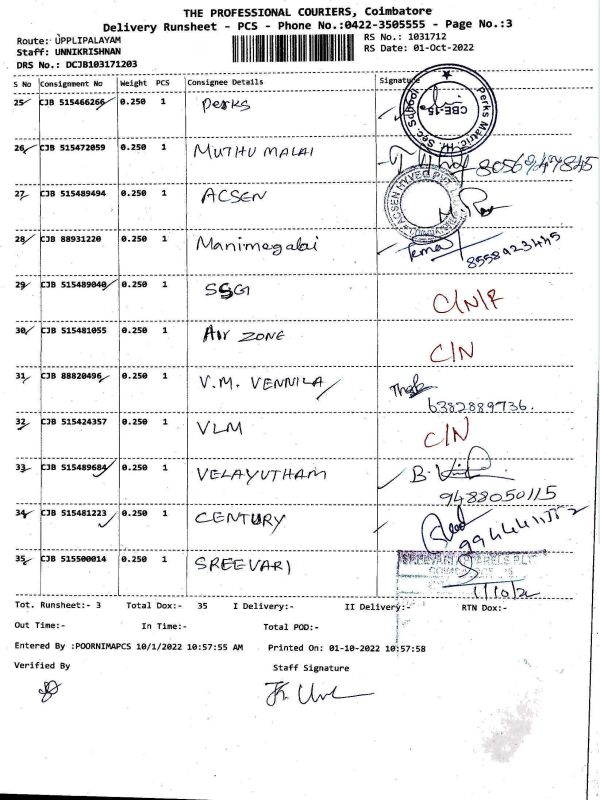 THE PROFESSIONAL COURIERS, Coimbatore
Delivery Runsheet - PCS - Phone No.:0422-3505555 - Page No.:3
Route: UPPLIPALAYAM RS No.: 1031712
Staff: UNNIKRISHNAN RS Date: 01-Oct-2022
DRS No.: DCJB103171203
S No Consignment No Weight PCS Consignee Details Signature
25 CJB 515466266 0.250 1 Perks
Perks Matric. Hr. Sec. School CBE-15
26 CJB 515472059 0.250 1 MUTHU MALAI
27 CJB 515489494 0.250 1 ACSEN
ACSEN
28 CJB 88931220 0.250 1 Manimegalai 8558923445
29 CJB 515489040 0.250 1 SSGI C/N/R
30 CJB 515481055 0.250 1 AIR ZONE C/N
31 CJB 88820496 0.250 1 V.M. VENNILA
6382889736.
32 CJB 515424357 0.250 1 VLM C/N
33 CJB 515489684 0.250 1 VELAYUTHAM B.
9488050115
34 CJB 515481223 0.250 1 CENTURY
35 CJB 515500014 0.250 1 SREEVARI
1/10/22
Tot. Runsheet:- 3 Total Dox:- 35 I Delivery:- II Delivery:- RTN Dox:-
Out Time:- In Time:- Total POD:-
Entered By :POORNIMAPCS 10/1/2022 10:57:55 AM Printed On: 01-10-2022 10:57:58
Verified By Staff Signature